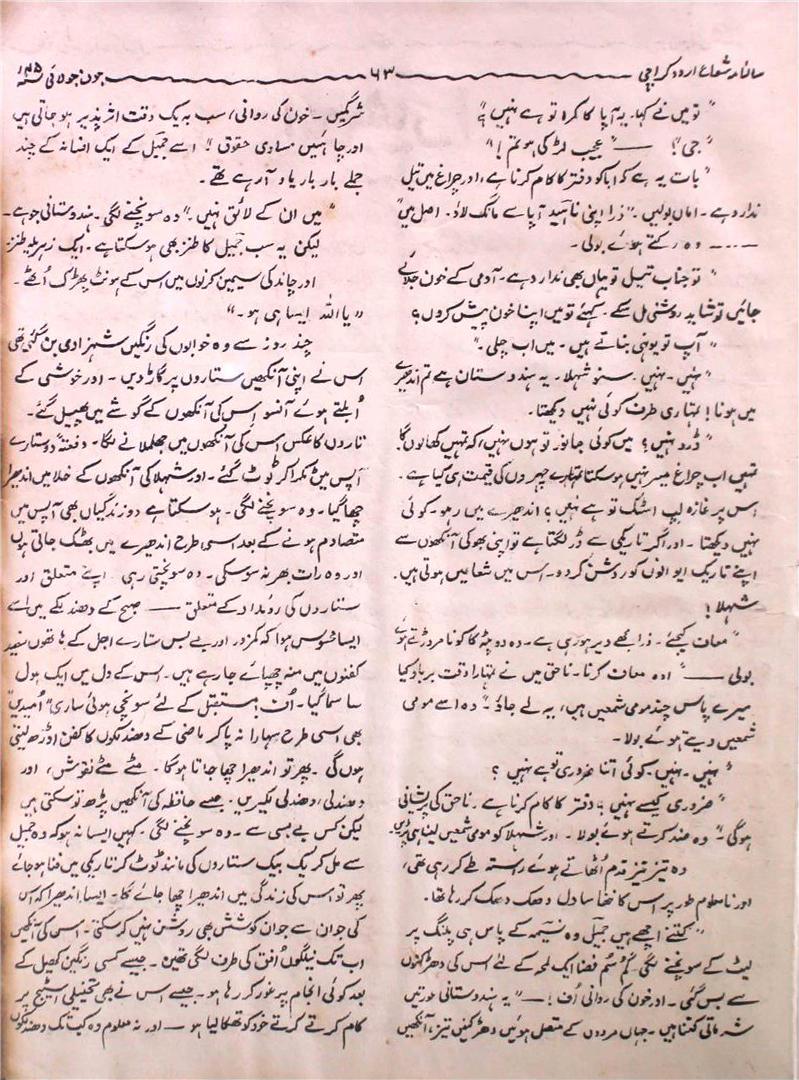 سالنامہ شعاع اردو کراچی ۶۳ جون جولائی ۴۵ء
" تو میں نے کہا۔ یہ آپا کا کمرا تو ہے نہیں ؟"
" جی ؟! —— " عجیب لڑکی ہو تم !"
" بات یہ ہے کہ ابا کو دفتر کا کام کرنا ہے، اور چراغ میں تیل
ندارد ہے۔ اماں بولیں۔ "ذرا اپنی ناہید آپا سے مانگ لاؤ۔ اصل میں"
۔۔۔۔ وہ رکتے ہوئے بولی۔
" تو جناب تیل تو یہاں بھی ندارد ہے۔ آدمی کے خون جلائے
جائیں تو شاید روشنی مل سکے۔ کہئے تو میں اپنا خون پیش کروں؟
" آپ تو یوں ہی بناتے ہیں۔ میں اب چلی۔"
" نہیں۔ نہیں۔ سنو شہلا۔ یہ ہندوستان ہے تم اندھیرے
میں ہونا! تمہاری طرف کوئی نہیں دیکھتا۔
" ڈرو نہیں؟ میں کوئی جانور تو ہوں نہیں، کہ تمہیں کھا لوں گا
تمہیں اب چراغ میسر نہیں ہو سکتا تمہارے چہروں کی قیمت ہی کیا ہے۔
اس پر غازہ لپ اسٹک تو ہے نہیں؛ اندھیرے میں رہو۔ کوئی
نہیں دیکھتا۔ اور اگر تاریکی سے ڈر لگتا ہے تو اپنی بھوکی آنکھوں سے
اپنے تاریک ایوانوں کو روشن کر دو۔ اس میں شعاعیں ہوتی ہیں۔
شہلا!
" معاف کیجئے۔ ذرا مجھے دیر ہو رہی ہے۔ وہ دوپٹہ کا کونا مروڑتے ہوئے
بولی —— " اوہ معاف کرنا۔ ناحق میں نے تمہارا وقت برباد کیا
میرے پاس چند مومی شمعیں ہیں، یہ لے جاؤ۔" وہ اسے مومی
شمعیں دیتے ہوئے بولا۔
" نہیں۔ نہیں۔ کوئی اتنا ضروری تو ہے نہیں ؟
" ضروری کیسے نہیں؛ دفتر کا کام کرنا ہے۔ ناحق کی پریشانی
ہوگی۔" وہ ضد کرتے ہوئے بولا۔ اور شہلا کو مومی شمعیں لینا ہی پڑیں۔
وہ تیز تیز قدم اُٹھاتے ہوئے راستہ طے کر رہی تھی،
اور نامعلوم طور پر اس کا ننھا سا دل دھک دھک کر رہا تھا۔
" کتنے اچھے ہیں جمیلؔ وہ نسیمہ کے پاس ہی پلنگ پر
لیٹ کے سوچنے لگی۔ گم سُم فضا ایک لمحہ کے لئے اس کی دھڑکنوں
سے بس گئی۔ اور خون کی روانی اُف! — " یہ ہندوستانی عورتیں
شرماتی کتنا ہیں۔ جہاں مردوں کے متصل ہوئیں دھڑکنیں تیز، آنکھیں
شرمگیں۔ خون کی روانی، سب بہ یک وقت اثر پذیر ہو جاتی ہیں
اور چاہئیں مساوی حقوق"! اسے جمیلؔ کے ایک افسانہ کے چند
جملے بار بار یاد آ رہے تھے۔
" میں ان کے لائق نہیں۔" وہ سوچنے لگی۔ ہندوستانی جو ہے۔
لیکن یہ سب جمیلؔ کا طنز بھی ہو سکتا ہے۔ ایک زہریلہ طنز
اور چاند کی سیمیں کرنوں میں اس کے ہونٹ پھڑک اُٹھے۔
" یا اللہ ایسا ہی ہو۔"
چند روز سے وہ خوابوں کی رنگین شہزادی بن گئی تھی
اس نے اپنی آنکھیں ستاروں پر گاڑ دیں۔ اور خوشی کے
اُبلتے ہوئے آنسو اس کی آنکھوں کے گوشے میں پھیل گئے۔
تاروں کا عکس اس کی آنکھوں میں جھلملانے لگا۔ دفعتہً دو ستارے
آپس میں ٹکرا کر ٹوٹ گئے۔ اور شہلا کی آنکھوں کے خلا میں اندھیرا
چھا گیا۔ وہ سوچنے لگی۔ ہو سکتا ہے دو زندگیاں بھی آپس میں
متصادم ہونے کے بعد اسی طرح اندھیرے میں بھٹک جاتی ہوں
اور وہ رات بھر نہ سو سکی۔ وہ سوچتی رہی اپنے متعلق اور
ستاروں کی روئداد کے متعلق —— صبح کے دھندلکے میں اسے
ایسا محسوس ہوا کہ کمزور اور بے بس ستارے اجل کے ہاتھوں سفید
کفنوں میں منہ چھپائے جا رہے ہیں۔ اس کے دل میں ایک ہول
سا سما گیا۔ اُف! مستقبل کے لئے سوچی ہوئی ساری "اُمیدیں"
بھی اسی طرح سہارا نہ پا کر ماضی کے دھندلکوں کا کفن اوڑھ لیتی
ہوں گی۔ پھر تو اندھیرا چھا جاتا ہوگا۔ مٹے مٹے نقوش، اور
دھندلی، دھندلی لکیریں۔ جسے حافظہ کی آنکھیں پڑھ تو سکتی ہیں
لیکن کس بے بسی سے۔ وہ سوچنے لگی۔ کہیں ایسا نہ ہو کہ وہ جمیل
سے مل کر یک بیک ستاروں کی مانند ٹوٹ کر تاریکی میں فنا ہو جائے
پھر تو اس کی زندگی میں اندھیرا چھا جائے گا۔ ایسا اندھیرا کہ اس
کی جوان سے جوان کوشش بھی روشن نہیں کر سکتی۔ اس کی آنکھیں
اب تک نیلگوں اُفق کی طرف لگی تھیں۔ جیسے کسی رنگین کھیل کے
بعد کوئی انجام پر غور کر رہا ہو۔ جیسے اس نے بھی تخیلی اسٹیج پر
کام کرتے کرتے خود کو تھکا لیا ہو —— اور نہ معلوم وہ کب تک دھندلکوں